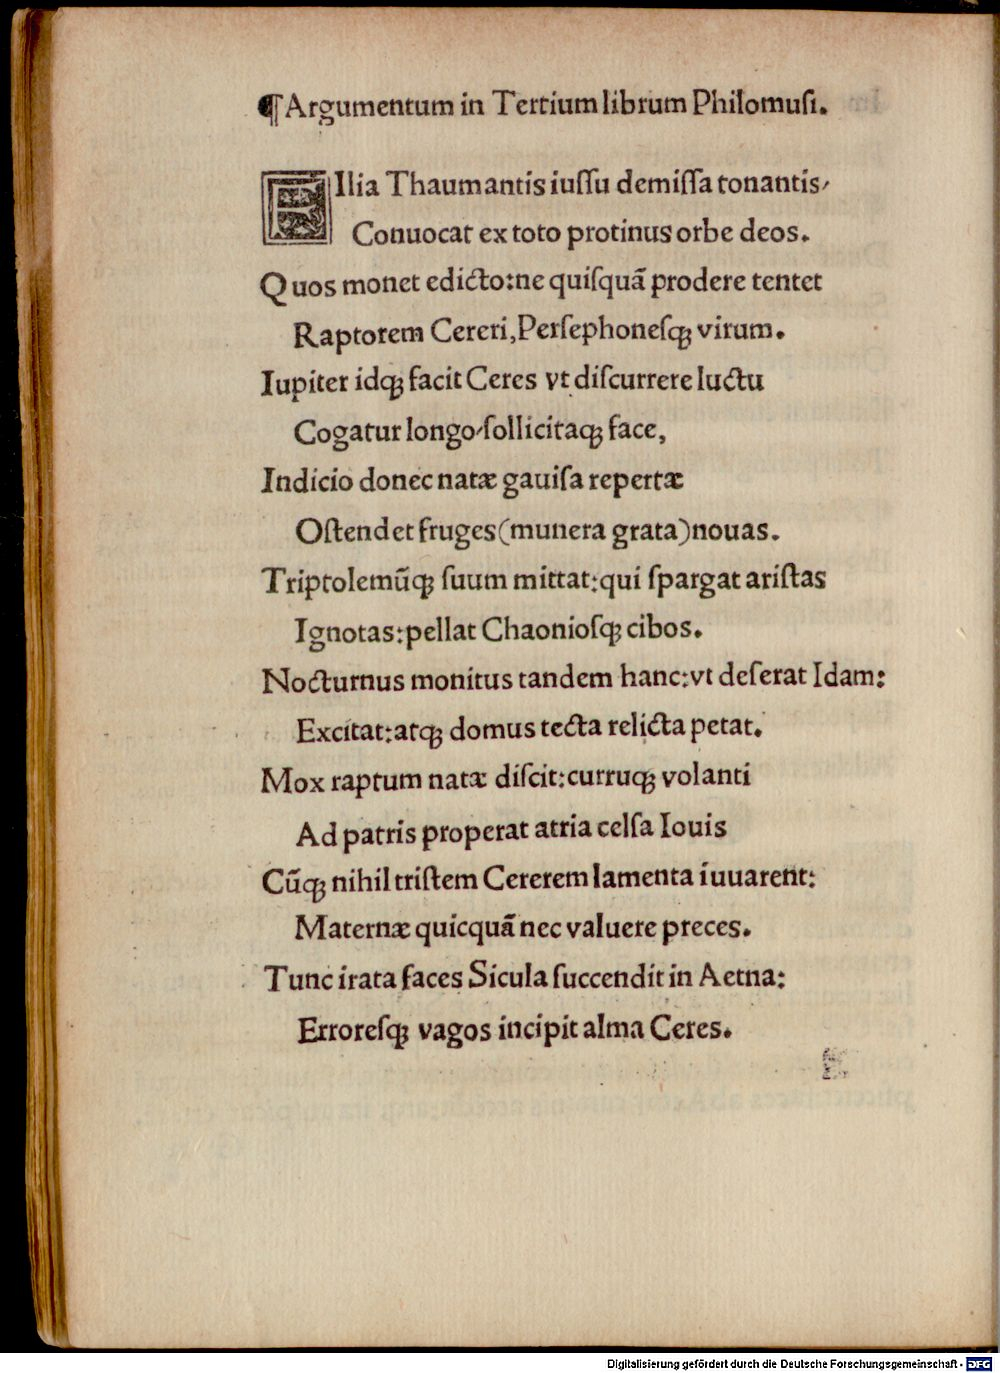 ¶Argumentum in Tertium librum Philomuſi.
FIlia Thaumantis iuſſu demiſſa tonantis⸝
Conuocat ex toto protinus orbe deos.
Quos monet edicto:ne quiſquã prodere tentet
Raptorem Cereri,Perſephoneſqꝫ virum.
Iupiter idqꝫ facit Ceres vt diſcurrere luctu
Cogatur longo⸝ſollicitaqꝫ face,
Indicio donec natæ gauiſa repertæ
Oſtendet fruges(munera grata)nouas.
Triptolemũqꝫ ſuum mittat:qui ſpargat ariſtas
Ignotas:pellat Chaonioſqꝫ cibos.
Nocturnus monitus tandem hanc:vt deſerat Idam:
Excitat:atqꝫ domus tecta relicta petat.
Mox raptum natæ diſcit:curruqꝫ volanti
Ad patris properat atria celſa Iouis
Cũqꝫ nihil triſtem Cererem lamenta iuuarent:
Maternæ quicquã nec valuere preces.
Tunc irata faces Sicula ſuccendit in Aetna:
Erroreſqꝫ vagos incipit alma Ceres.
Digitalisierung gefördert durch die Deutsche Forschungsgemeinschaft - DFG